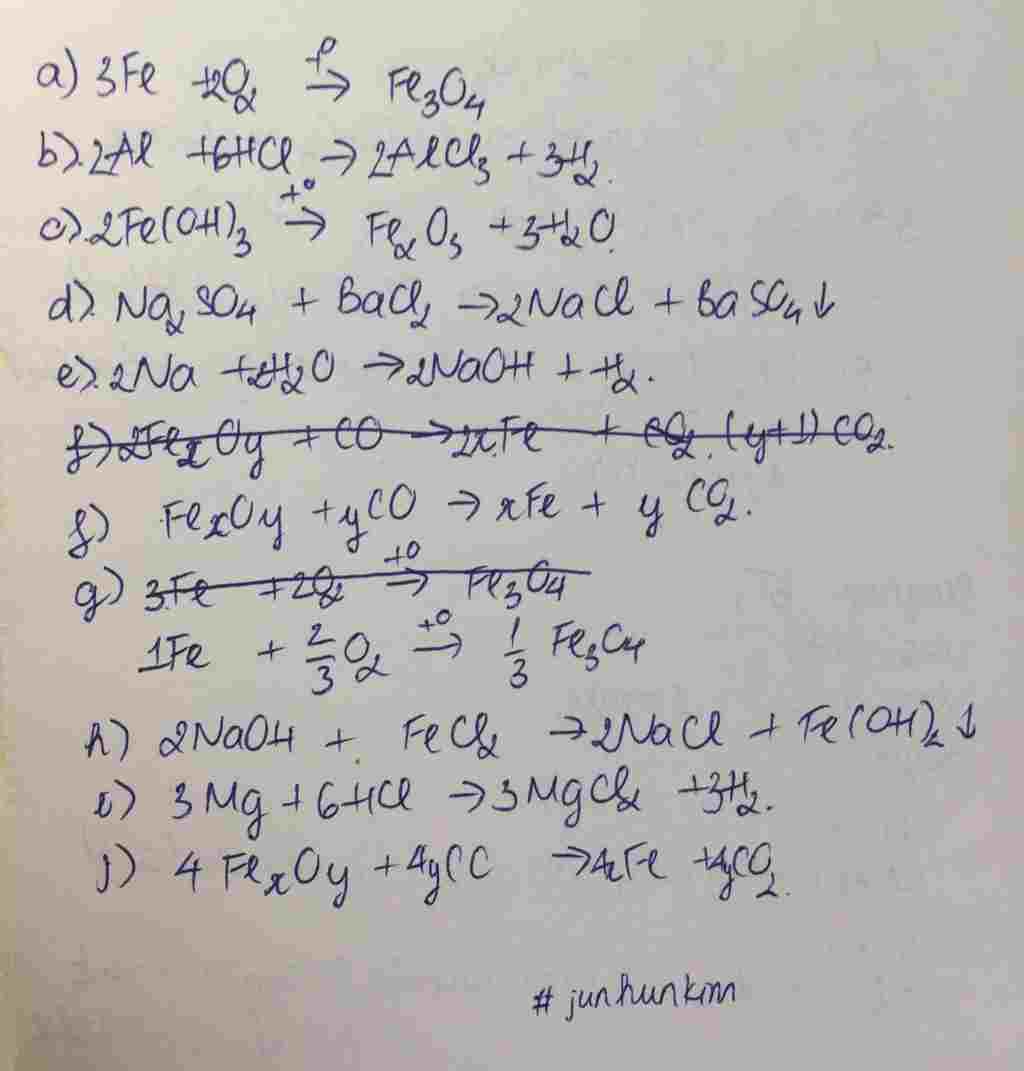 a) 3Fe + 2O₂ t° → Fe₃O₄
b). 2Al + 6HCl → 2AlCl₃ + 3H₂.
c). 2Fe(OH)₃ t° → Fe₂O₃ + 3H₂O
d). Na₂SO₄ + BaCl₂ → 2NaCl + BaSO₄↓
e). 2Na + 2H₂O → 2NaOH + H₂.
f) 2FeₓOy + CO → 2xFe + CO₂. (y+1) CO₂.
f) FeₓOy + yCO → xFe + y CO₂.
g) 3Fe + 2O₂ t° → Fe₃O₄
1Fe + 2/3 O₂ t° → 1/3 Fe₃O₄
h) 2NaOH + FeCl₂ → 2NaCl + Fe(OH)₂↓
i) 3Mg + 6HCl → 3MgCl₂ + 3H₂.
j) 4 FeₓOy + 4yCO → 4xFe + 4yCO₂.
# junhunkim